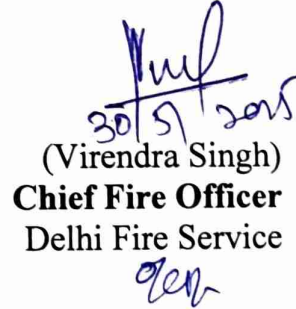 30/5/2025
(Virendra Singh)
Chief Fire Officer
Delhi Fire Service